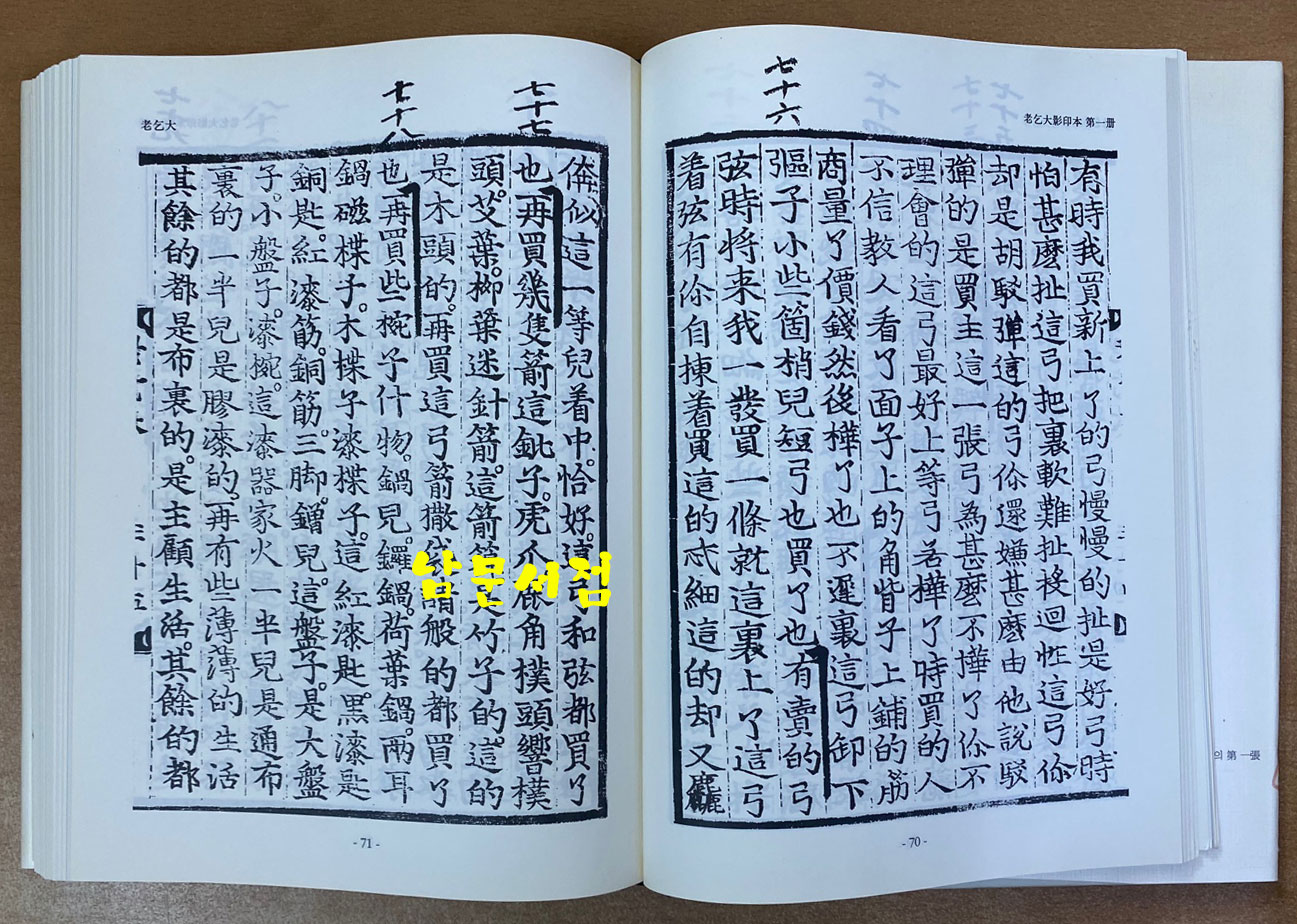 老乞大影印本 第一册
七十六
有時我買新上了的弓慢慢的扯是好弓時
怕甚麼扯這弓把裏軟難扯迴性這弓你
却是胡駁彈這的弓你還嫌甚麼由他說駁
彈的是買主這一張弓為甚麼不樺了你不
理會的這弓最好上等弓若樺了時買的人
不信教人看了面子上的角背子上鋪的筋
商量了價錢然後樺了也不遲裏這弓卸下
彄子小些箇梢兒短弓也買了也有賣的弓
弦時将来我一發買一條就這裏上了這弓
着弦有你自揀着買這的忒細這的却又麤
- 70 -
의 第一張
老乞大
七十七
七十八
似這一等兒着中。恰好。這弓和弦都買了
也再買幾隻箭這鈚子。虎爪鹿角樸頭響樸
頭。艾葉。柳葉迷針箭。這箭是竹子的。這的
是木頭的。再買這弓箭撒袋諸般的都買了
也再買些椀子什物。鍋兒。鑼鍋。荷葉鍋。兩耳
鍋磁楪子。木楪子漆楪子。這紅漆匙。黑漆匙
銅匙。紅漆筯。銅筯。三脚。鐺兒。這盤子。是大盤
子。小盤子。漆椀。這漆器家火一半兒是通布
裏的一半兒是膠漆的。再有些薄薄的生活
其餘的都是布裏的。是主顧生活。其餘的都
- 71 -
남문서점